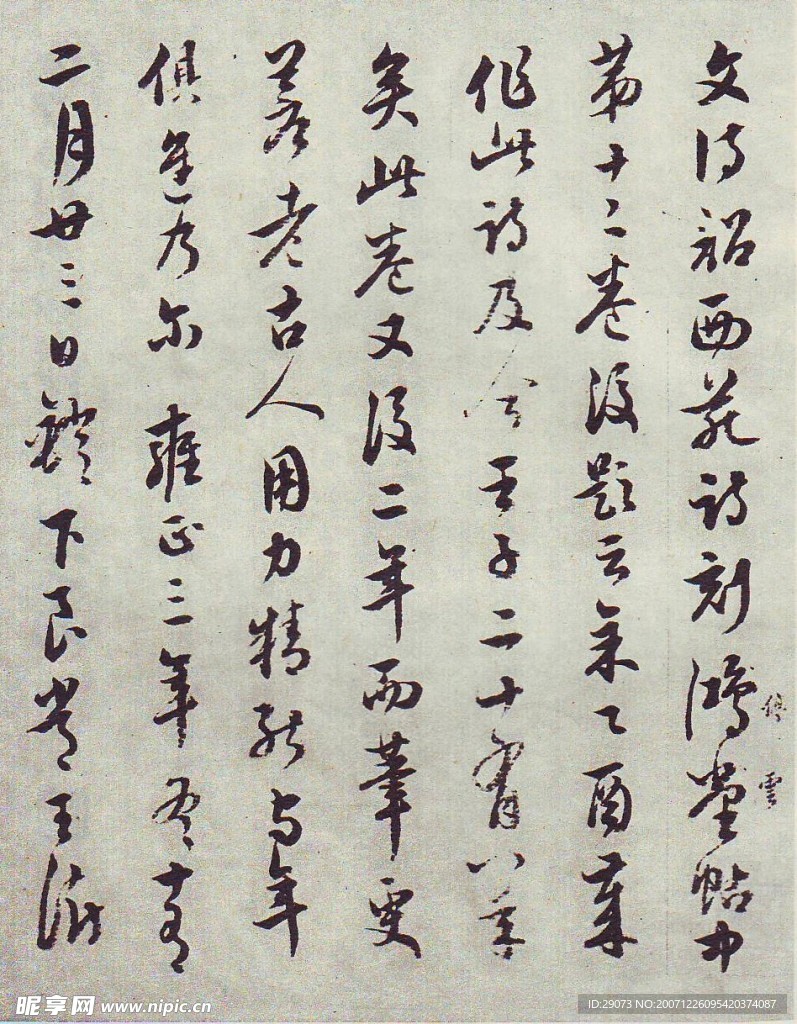 文待詔西苑詩刻鴻堂帖中
第十二卷後題云余乙酉歲
作此詩及今壬子二十有八年
矣此卷又後二年而筆更
蒼老古人用力精能与年
俱進乃尔 雍正三年 冬十有
二月廿三日 下艮常王澍
昵享网 www.nipic.cn
ID:29073 NO:20071226095420374087